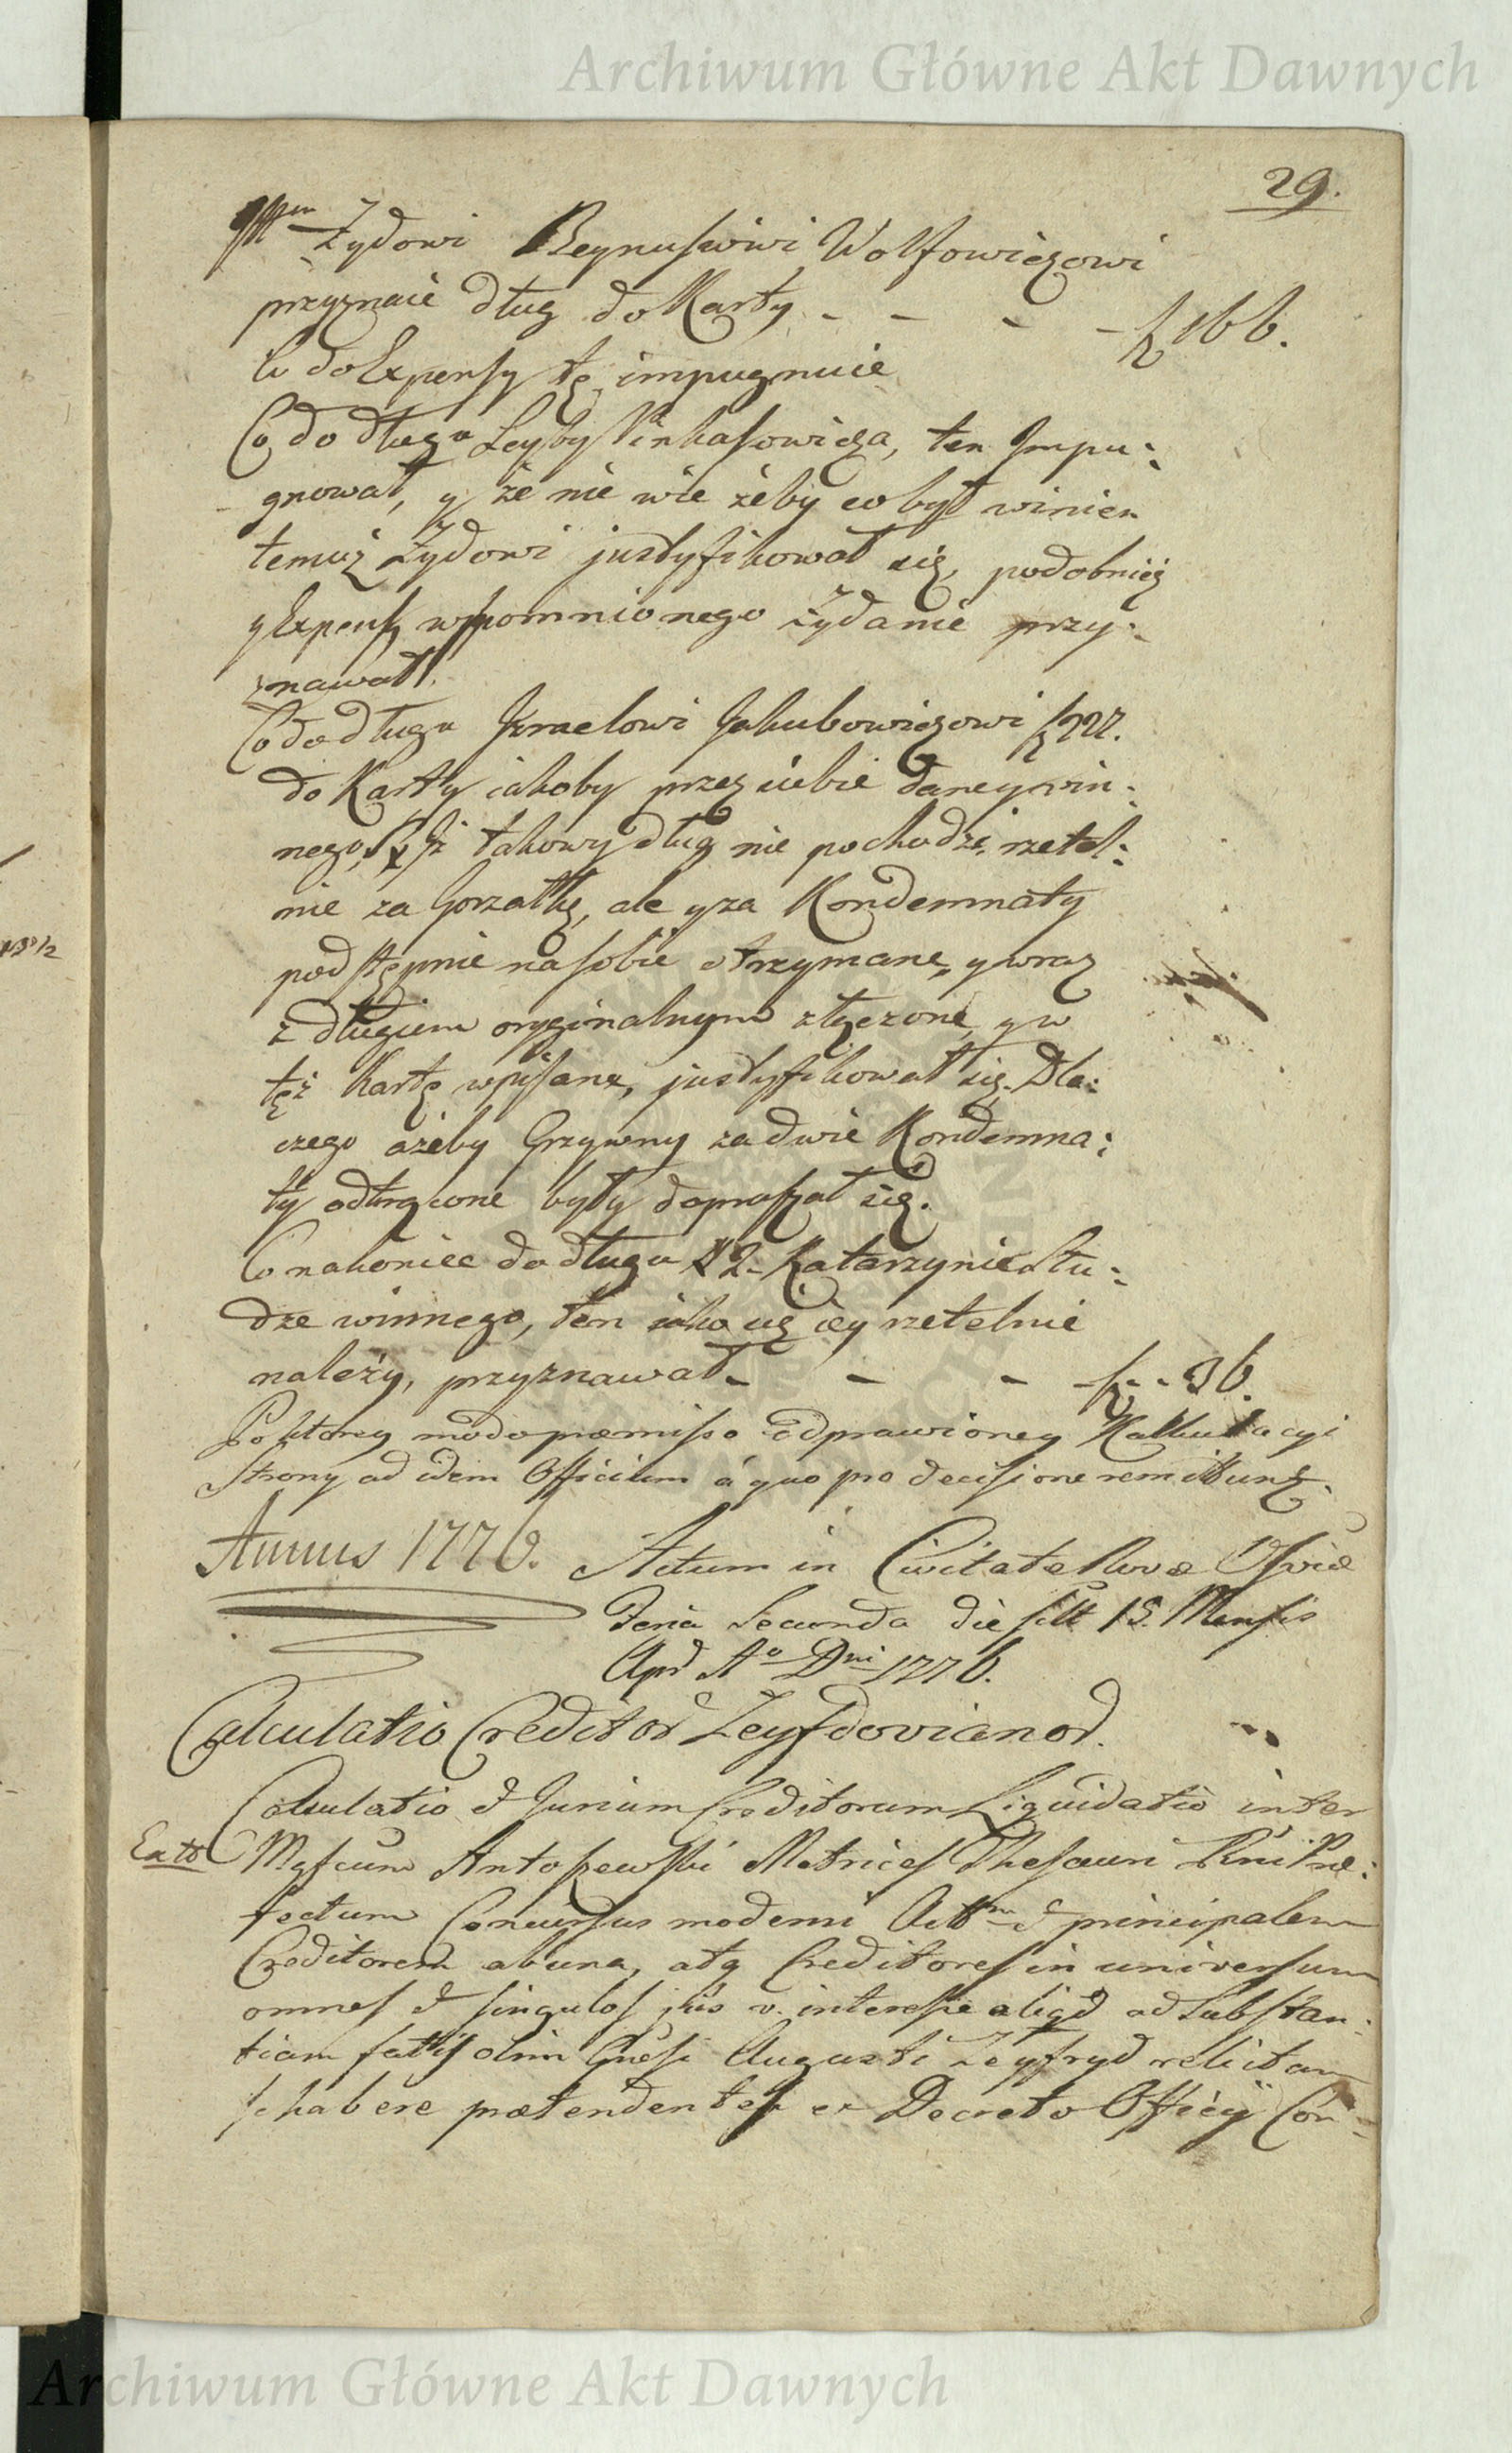 Archiwum Główne Akt Dawnych
29.
Żydowi Beynusiowi Wolfowiczowi
przyznaie dług do Karty - - - - f 166.
Co do Expensy tę impugnuie
Co do długu Leyby Pinkasowicza, ten Impu:
gnował, y że nie wie żeby co był winien
temuż Żydowi justyfikował się, podobnież
y Expens wspomnionego Żyda nie przy:
znawał.
Co do długu Izraelowi Jakubowiczowi f 927.
do Karty jakoby przez siebie daney win:
nego, Iż takowy dług nie pochodzi rzetel:
nie za Gorzałkę, ale y za Kondemnaty
podstępnie na sobie otrzymane, y wraz
z długiem oryginalnym złączone, y w
tęż Kartę wpisane, justyfikował się. Dla:
czego ażeby Grzywny za dwie Kondemna:
ty odtrącone były dopraszał się.
Co nakoniec do długu Katarzynie Słu:
dze winnego, ten iako iey rzetelnie
należy, przyznawał - - - f - - 36.
Po ktorey modo præmisso odprawioney Kalkulacyi
Strony ad idem Officium á quo pro decisione remittunt.
Annus 1776. Actum in Civitate Nova
Feria Secunda die 15. Mensis
Apr A° Dni 1776.
Calculatio Creditor Zeyfdovianor.
Calculatio & Jurium Creditorum Liquidatio inter
Mgfcum Antoszewski Metrices Thesauri Rni Præ:
fectum Concursus moderni & principalem
Creditorem ab una, atq Creditores in universum
omnes & singulos jus v. interesse aliqd ad Substan:
tiam olim Gnesi Augusti Zeyfryd relictam
habere prætendentes ex Decreto Officij Con-
Archiwum Główne Akt Dawnych